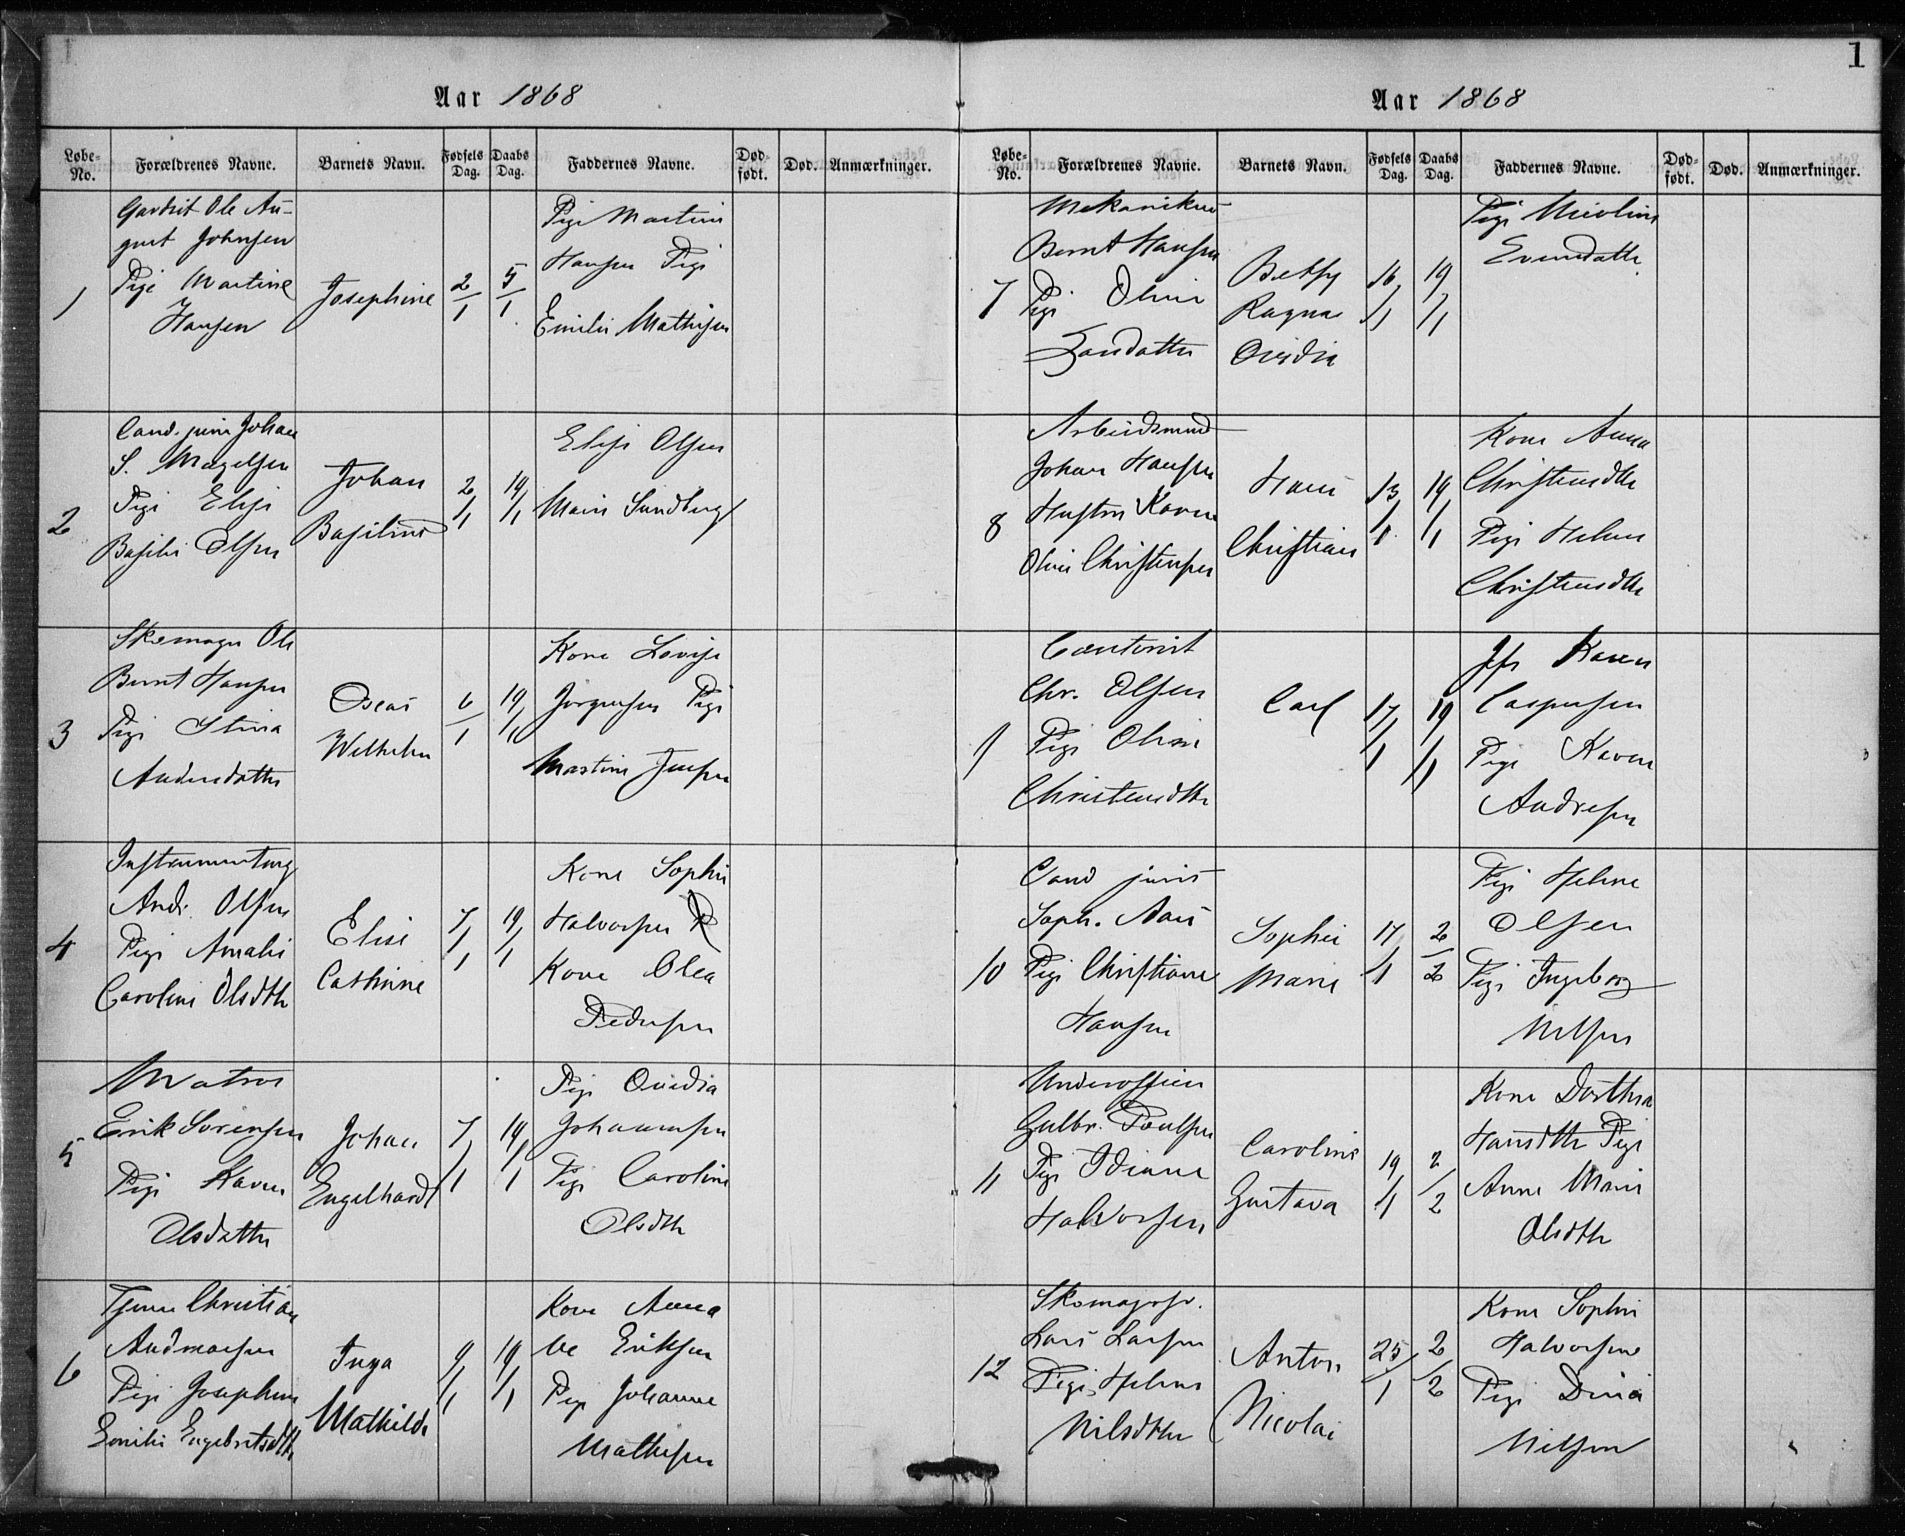 1
Aar 1868
Løbe-No. Forældrenes Navne. Barnets Navn. Fødsels Dag. Daabs Dag. Faddernes Navne. Død-født. Død. Anmærkninger.
1
Gardist Ole Au-
gust Johnsen
Pige Martine
Hansen
Josephine
2/1
5/1
Pige Martine
Hansen Pige
Emilie Mathisen
2
Cand. juris Johan
S. Magelsen
Pige Elise
Basilie Olsen
Johan
Basilius
2/1
19/1
Elise Olsen
Marie Sundberg
3
Skomager Ole
Bernt Hansen
Pige Stina
Andersdatter
Oscar
Wilhelm
6/1
19/1
Kone Lovise
Jørgensen Pige
Martine Jensen
4
Instrumentmg
Andr. Olsen
Pige Amalie
Caroline Olsdtr
Elise
Cathrine
7/1
19/1
Kone Sophie
Halvorsen
Kone Olea
Pedersen
5
Matros
Erik Sørensen
Pige Karen
Olsdatter
Johan
Engelhardt
7/1
19/1
Pige Ovidia
Johannesen
Pige Caroline
Olsdtr
6
Tjener Christian
Andreassen
Pige Josephine
Emilie Engebretsdtr
Inga
Mathilde
9/1
19/1
Kone Anna
Eriksen
Pige Johanne
Mathisen
Aar 1868
Løbe-No. Forældrenes Navne. Barnets Navn. Fødsels Dag. Daabs Dag. Faddernes Navne. Død-født. Død. Anmærkninger.
7
Mekanikus
Bernt Hansen
Pige Oline
Larsdatter
Betsy
Ragna
Ovidia
16/1
19/1
Pige Nicoline
Evensdatter
8
Arbeidsmand
Johan Hansen
Hustru Karen
Oline Christensen
Hans
Christian
13/1
19/1
Kone Anna
Christensdtr
Pige Helene
Christensdtr
9
Chr. Olsen
Pige Oline
Christensdtr
Carl
17/1
19/1
Jfr Karen
Caspersen
Pige Karen
Andresen
10
Cand juris
Soph. Aars
Pige Christiane
Hansen
Sophie
Marie
17/1
2/2
Pige Helene
Olsen
Pige Ingeborg
Nilsen
11
Underofficier
Gulbr. Poulsen
Pige Idiane
Halvorsen
Caroline
Gustava
19/1
2/2
Kone Dorthea
Hansdtr Pige
Anne Marie
Olsdtr
12
Skomagersv.
Lars Larsen
Pige Helene
Nilsdtr
Anton
Nicolai
25/1
2/2
Kone Sophie
Halvorsen
Pige Dina
Nilsen